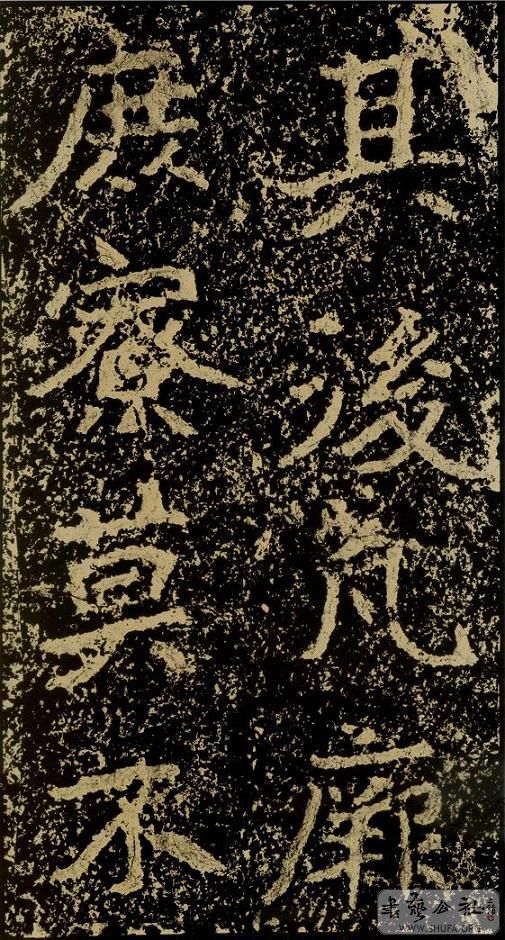 其後凡厥
庶寮莫不
書藝公社
WWW.SHUFA.ORG